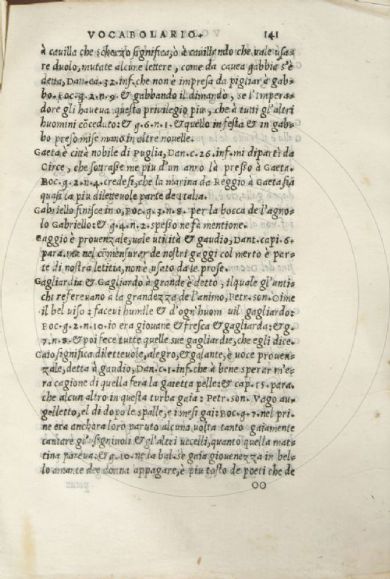 VOCABOLARIO. 141
à cauilla che ischerzo significa, ò è cauillando che vale usa-
re duolo, mutate alcune lettere, come da cauea gabbia s'è
detta, Dan. ca. 32. inf. che non è impresa da pigliar à gab-
bo. Boc. g. 2. n. 9. & gabbando il dimandò, se l'impera-
dore gli haueua questo priuilegio piu, che à tutti gl'altri
huomini cõceduto: & g. 6. n. 1. & quello in festa & in gab-
bo preso mise mano in altre nouelle.
Gaeta è città nobile di Puglia, Dan. c. 26. inf. mi diparti da
Circe, che sottrasse me piu d'un anno là presso à Gaeta.
Boc. g. 2. n. 4. credesi, che la marina da Reggio à Gaeta sia
quasi la piu diletteuole parte de Italia.
Gabriello finisce in o, Boc. g. 3. n. 8. per la bocca de l'agno-
lo Gabriello: & g. 4. n. 2. spesso ne fà mentione.
Gaggio è prouenzale, uale utilità & gaudio, Dant. capi. 6.
para. ma nel commensurar de nostri gaggi col merto è par-
te di nostra letitia, non è usato da le prose.
Gagliardia & Gagliardo à grande è detto, il quale gl'anti-
chi refereuano à la grandezza de l'animo, Petr. son. Come
il bel uiso: faceui humile & d'ogn'huom uil gagliardo:
Boc. g. 2. n. 10. io era giouane & fresca & gagliarda; & g.
7. n. 8. & poi fece tutte quelle sue gagliardie, che egli dice.
Gaio significa diletteuole, alegro, & galante, è uoce prouen-
zale, detta à gaudio, Dan. c. 1. inf. che à bene sperar m'e-
ra cagione di quella fera la gaietta pelle: & cap. 15. para.
che alcun altro in questa turba gaia: Petr. son. Vago au-
gelletto, el dì dopo le spalle, e i mesi gai: Boc. g. 7. nel pri.
ne era anchora loro paruto alcuna uolta tanto gaiamente
cantare gl'usignuoli & gl'altri uccelli, quanto quella mat-
tina pareua: & g. 10. ne la bal. se gaia giouenezza in bel-
lo amante dee donna appagare, è piu tosto de poeti che de
OO